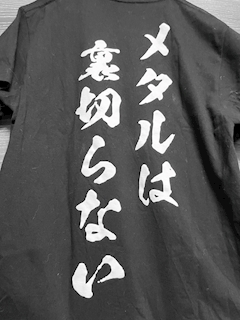 メタルは
裏切らない